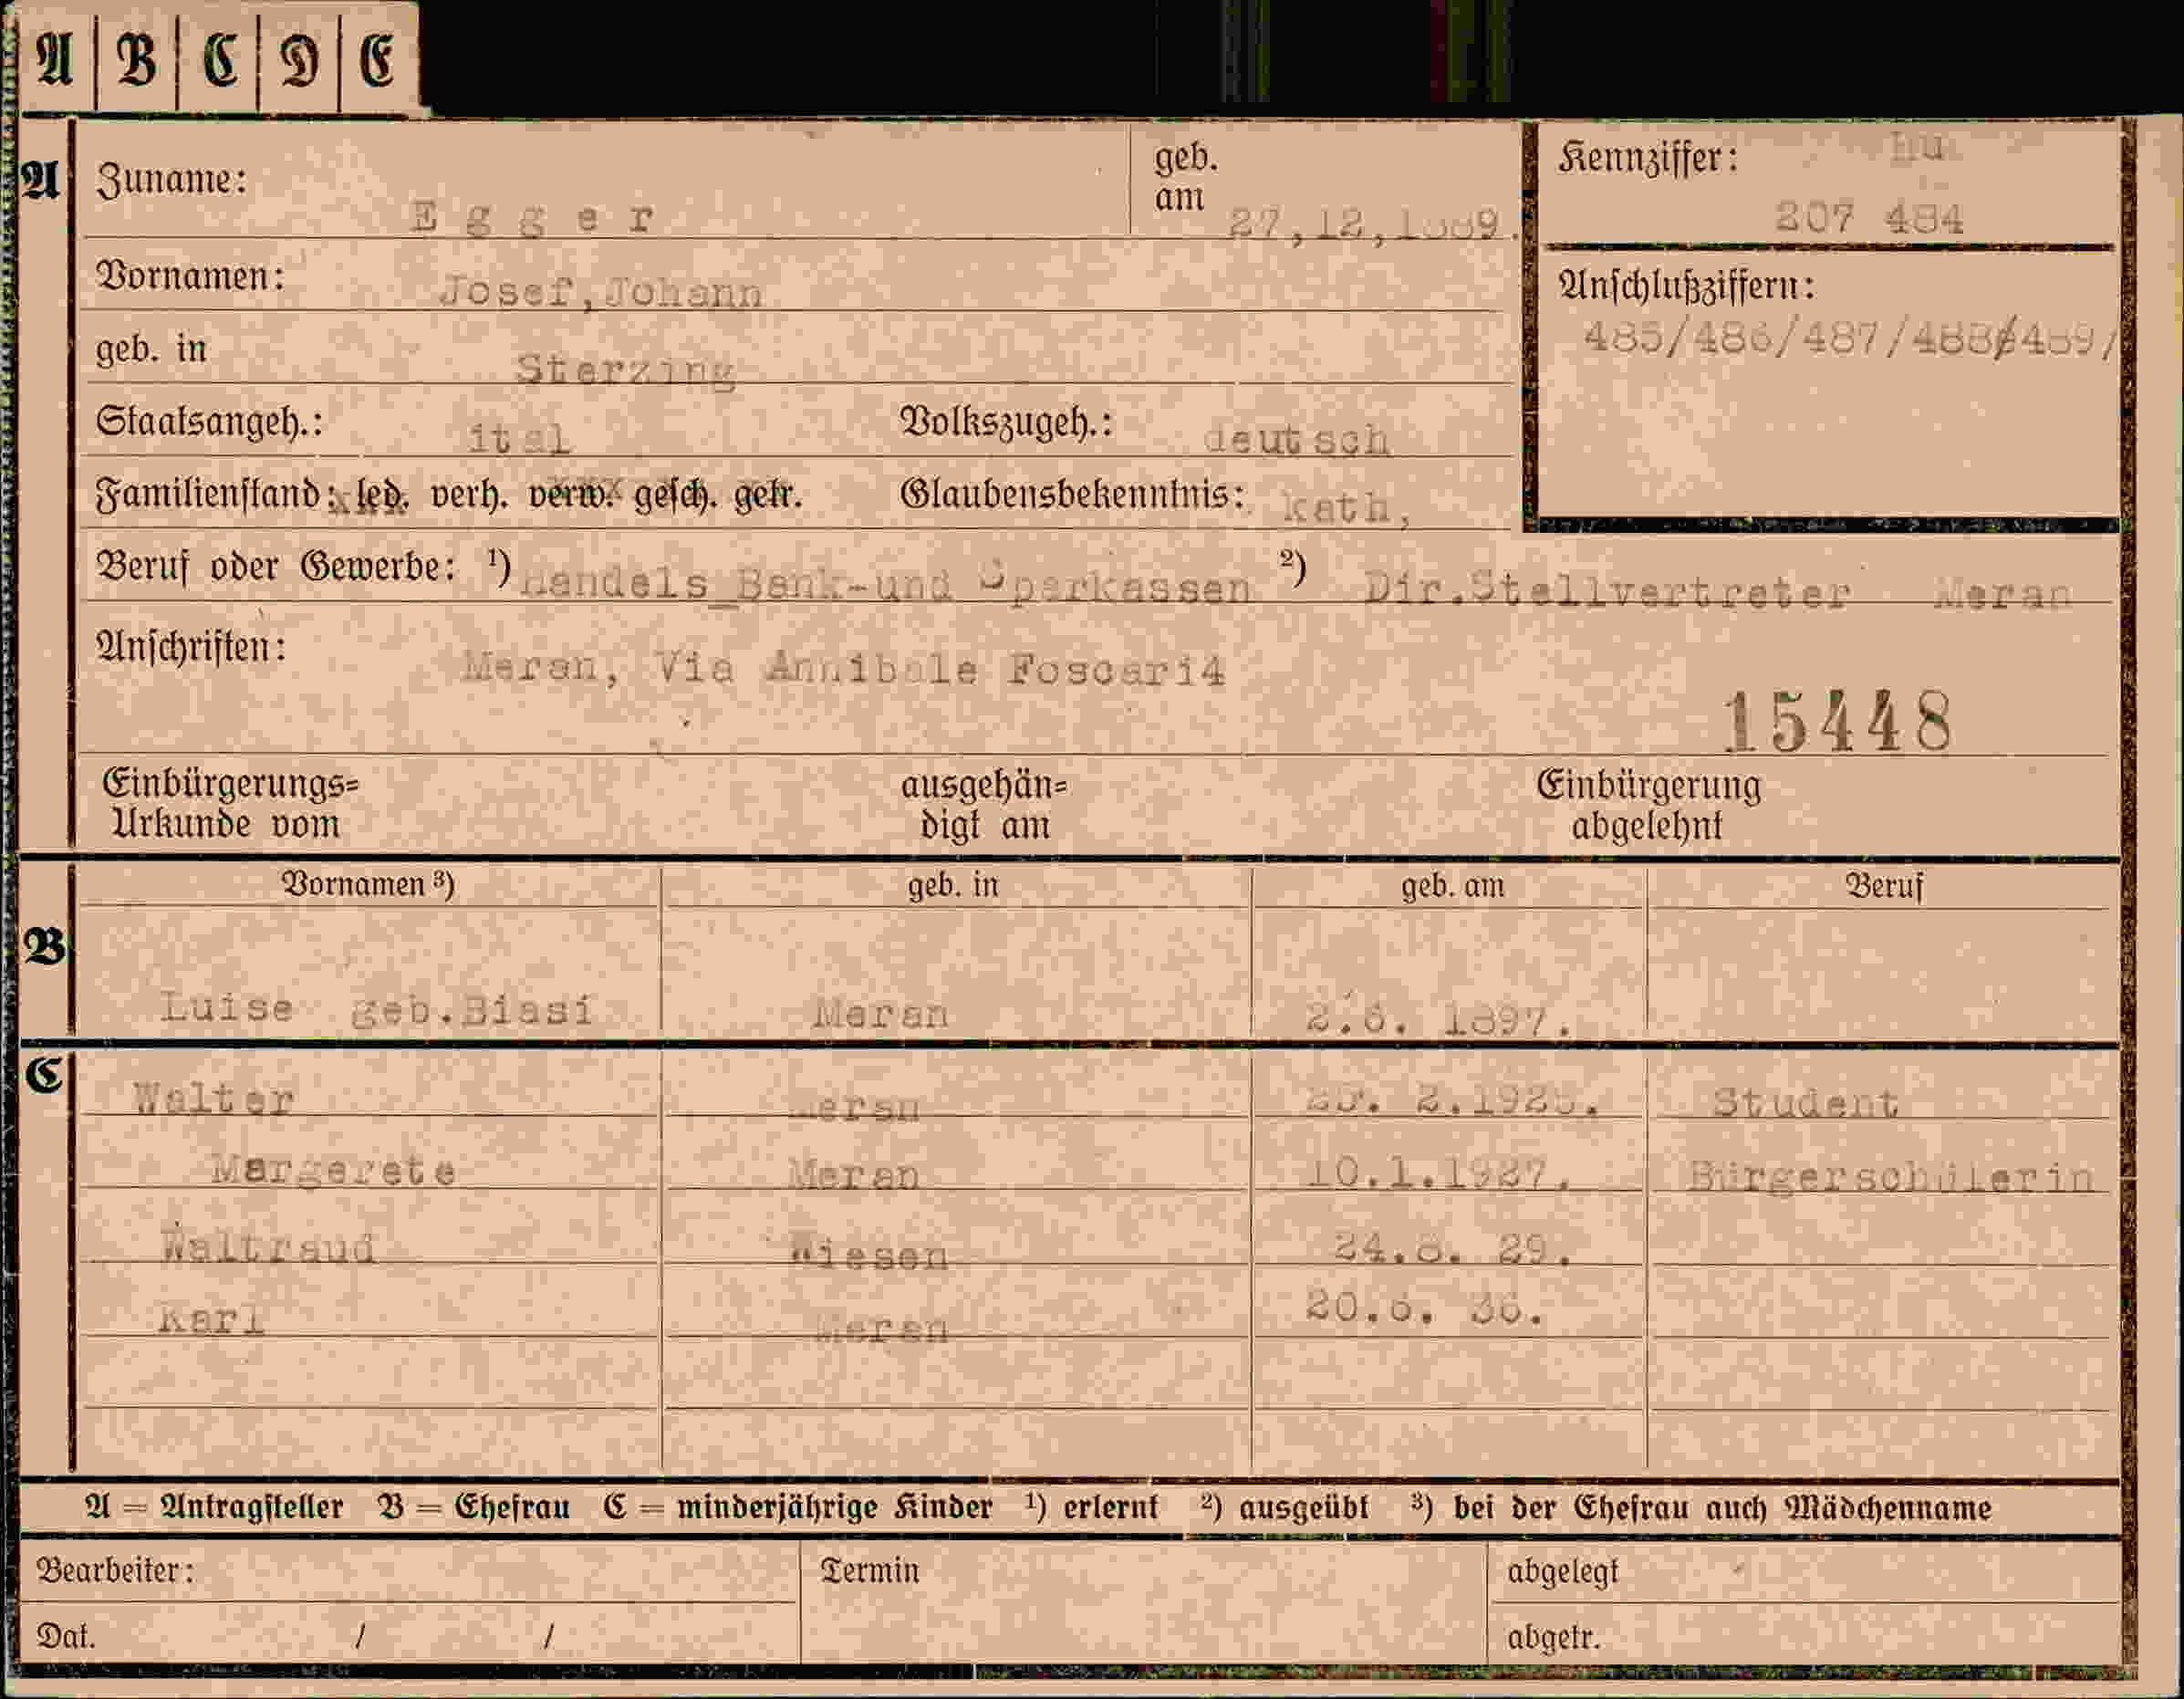 A B C D E
A Zuname: Egger geb. am 27,12,1889. Kennziffer:
207 484
Vornamen: Josef,Johann Anschlußziffern:
485/486/487/488/489/
geb. in Sterzing
Staatsangeh.: ital Volkszugeh.: deutsch
Familienstand: led. verh. verw. gesch. getr. Glaubensbekenntnis: kath,
Beruf oder Gewerbe: ¹) Handels_Bank-und Sparkassen ²) Dir.Stellvertreter Meran
Anschriften: Meran, Via Annibale Foscari4
15448
Einbürgerungs= ausgehän= Einbürgerung
Urkunde vom digt am abgelehnt
Vornamen ³) geb. in geb. am Beruf
B
Luise geb.Biasi Meran 2.6. 1897.
C
Walter Meran Student
Margerete Meran 10.1.1927. Bürgerschülerin
Waltraud Wiesen 29.
Karl Meran 20.6. 36.
A = Antragsteller B = Ehefrau C = minderjährige Kinder ¹) erlernt ²) ausgeübt ³) bei der Ehefrau auch Mädchenname
Bearbeiter: Termin abgelegt
Dat. / / abgetr.